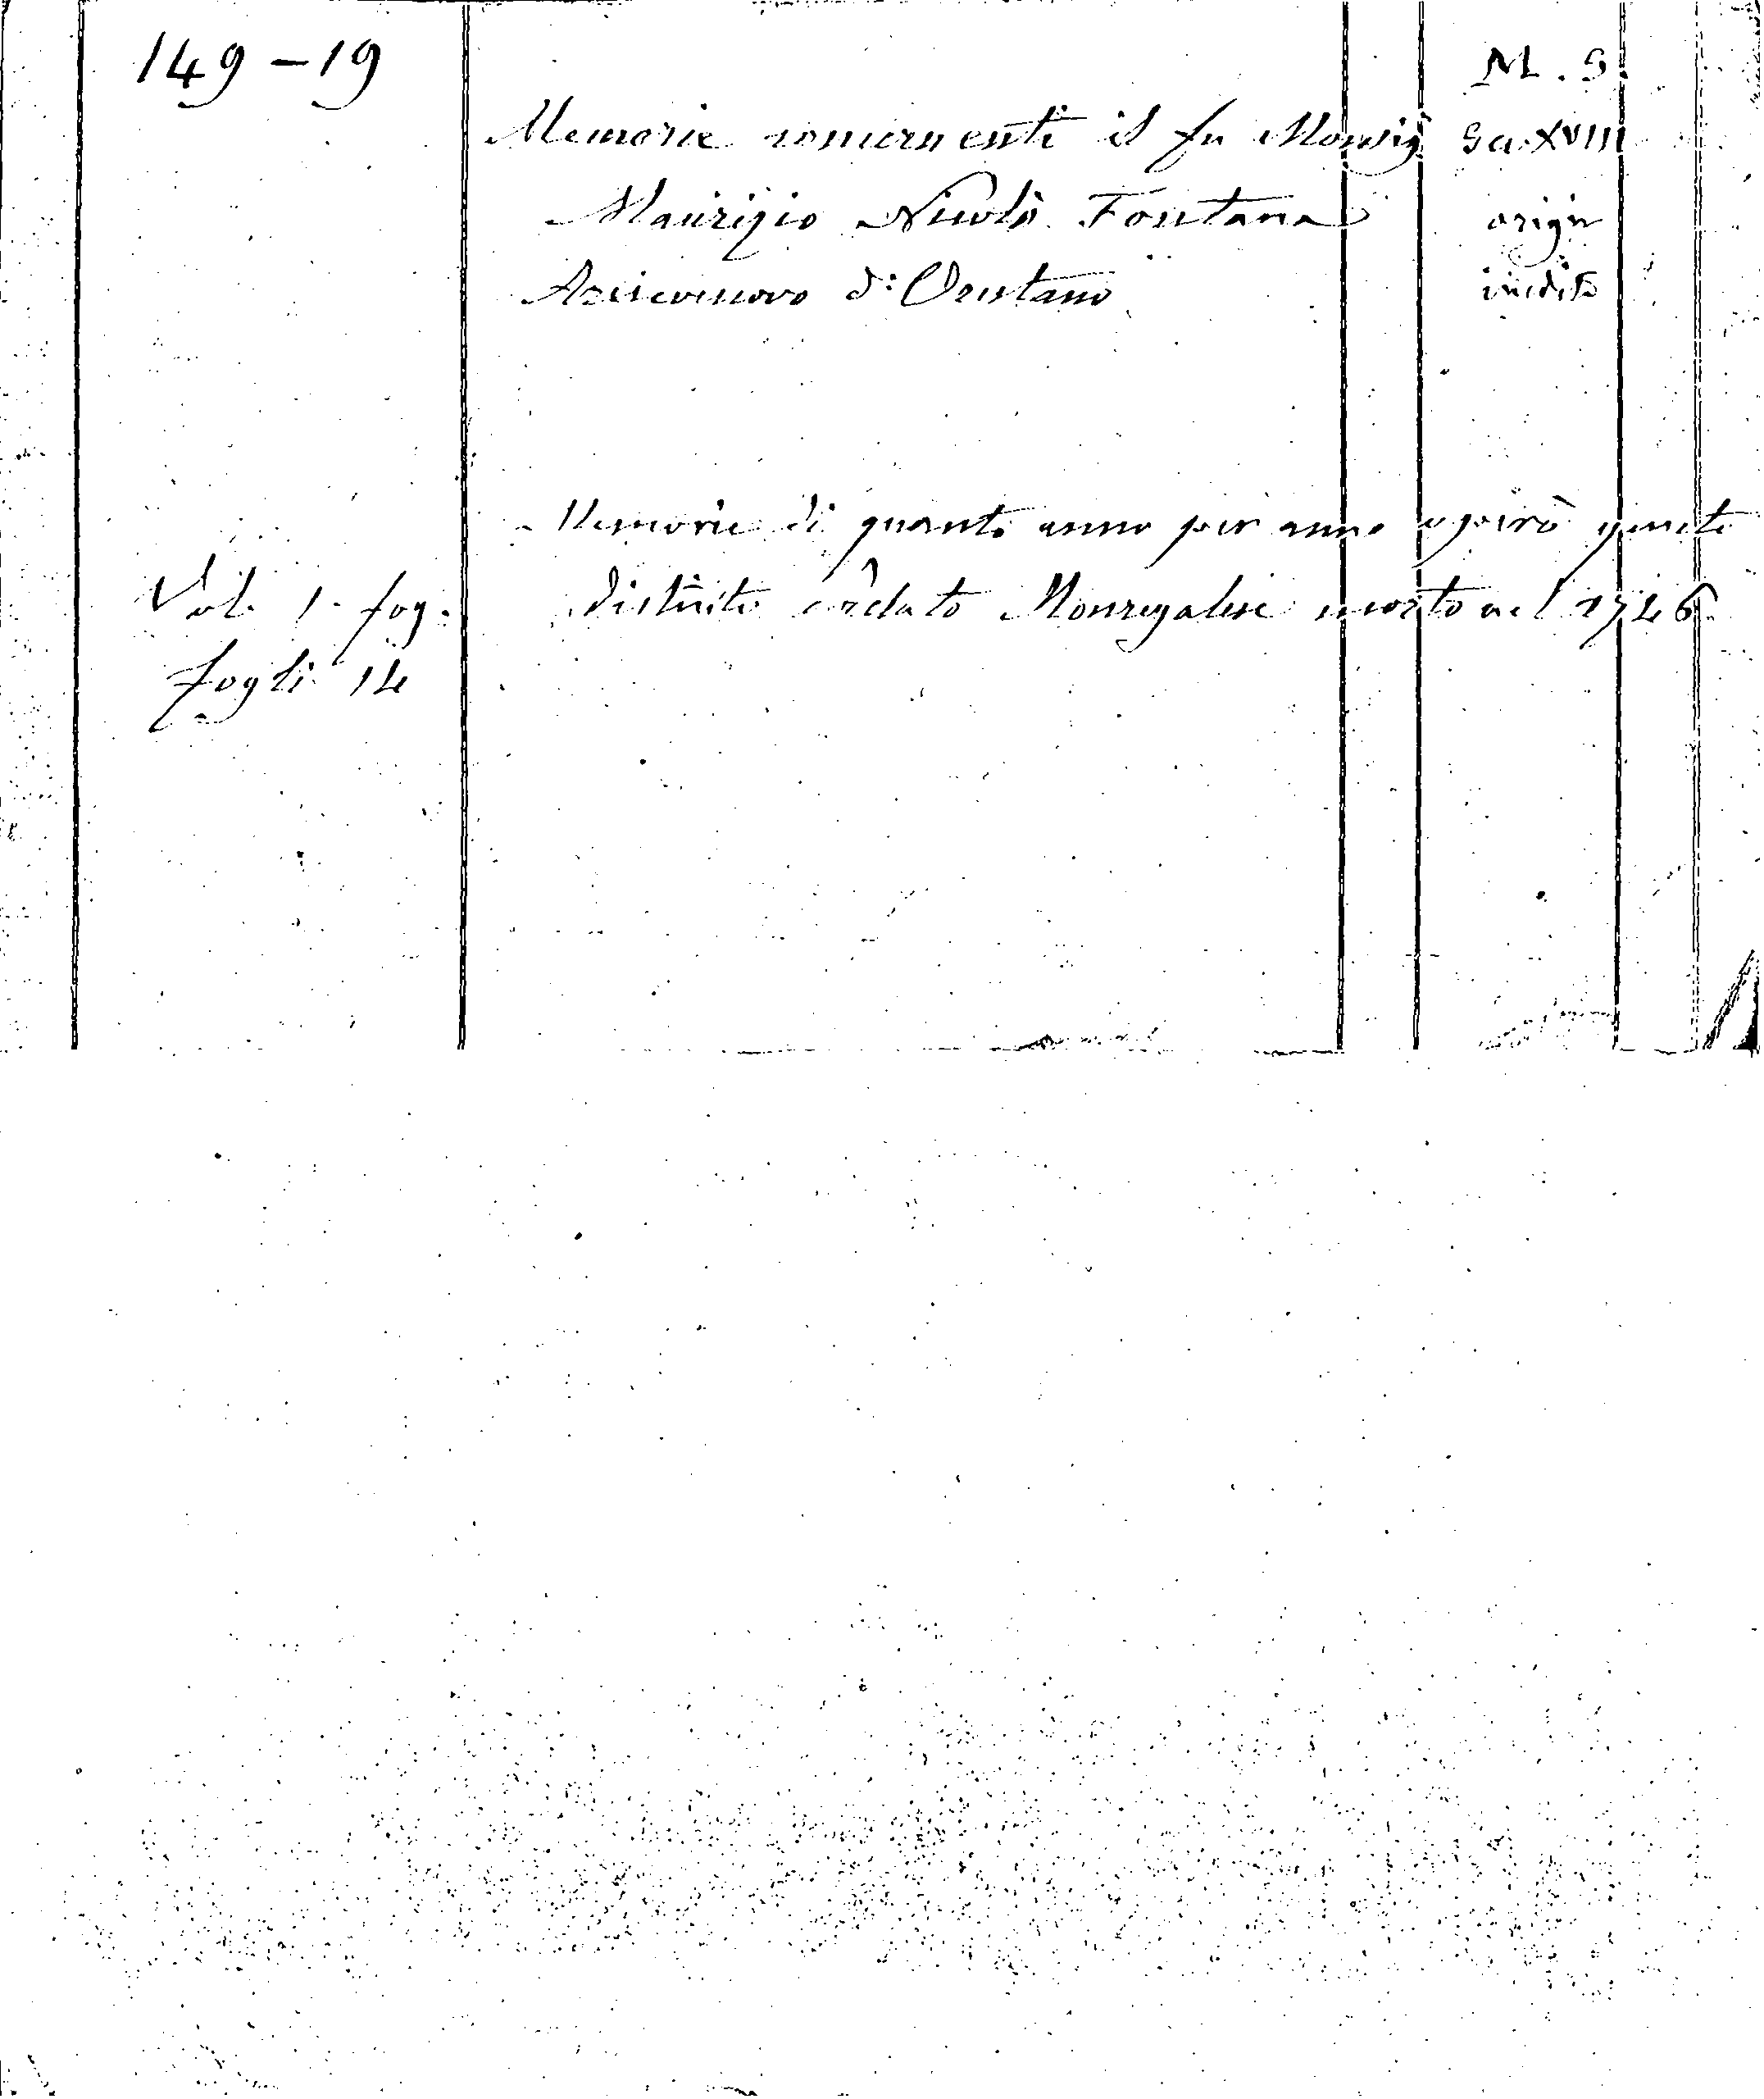 149 - 19
M. S.
Memorie concernenti il fu Monsig
Sec. XVIII
Maurizio Nicolò Fontana
origin
Arcivescovo d'Oristano
inedito
Memorie di quanto anno per anno operò questo
Vol. 1. fog.
distinto Monregalese morto nel 1746.
fogli 14